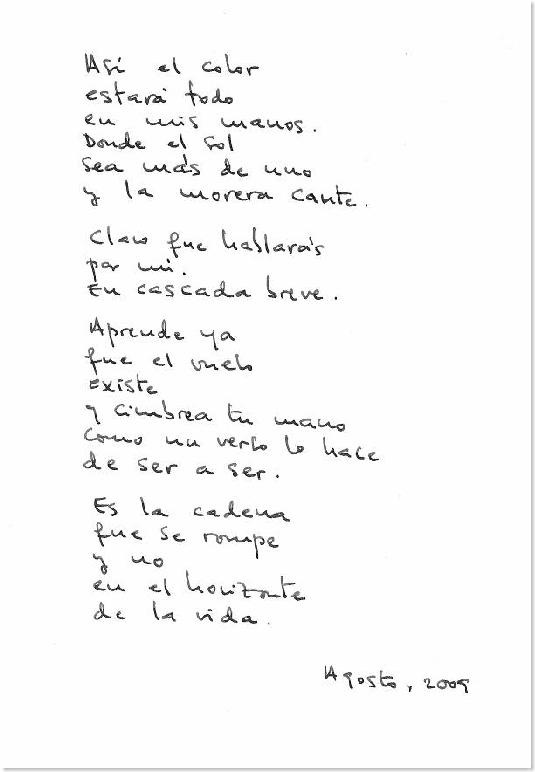 Así el color
estará todo
en mis manos.
Donde el sol
sea más de uno
y la morera cante.
Claro que hablarás
por mí.
En cascada breve.
Aprende ya
que el vuelo
existe
y cimbrea tu mano
como un verbo lo hace
de ser a ser.
Es la cadena
que se rompe
y no
en el horizonte
de la vida.
Agosto, 2009